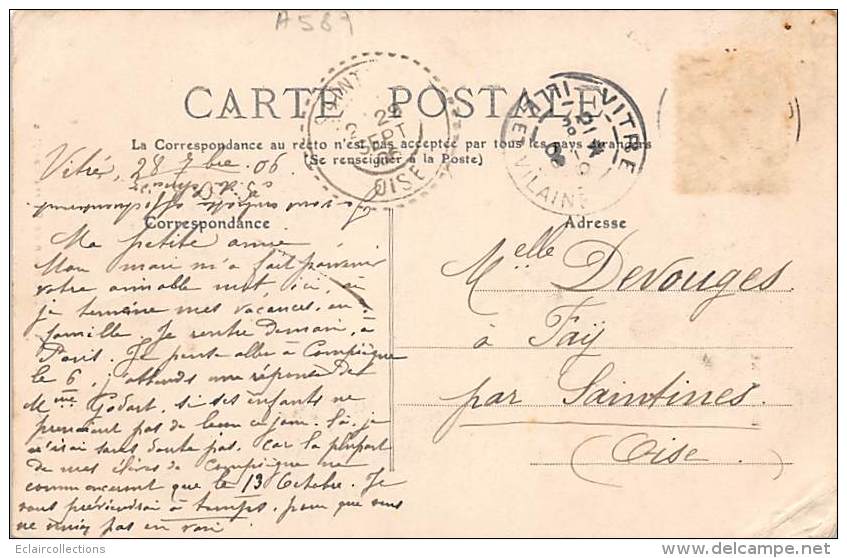 A589
CARTE POSTALE
La Correspondance au recto n'est pas acceptée par tous les pays étrangers
(Se renseigner à la Poste)
29
SEPT
06
OISE
VITRÉ
ILLE-ET-VILAINE
Vitré, 28 7bre 06.
Correspondance
Adresse
Ma petite amie
Mon mari m'a fait parvenir
votre aimable mot, ici, où
je termine mes vacances, en
famille. Je rentre demain, à
Paris. Je pense aller à Compiègne
le 6, j'attends une réponse de
Mme Godart, si ses enfants ne
prenaient pas de leçon ce jour-là, je
n'irai sans doute pas, car la plupart
de mes élèves de Compiègne ne
commenceront que le 13 Octobre. Je
vous préviendrai à temps, pour que vous
ne veniez pas en vain.
Melle Devouges
à Faÿ
par Saintines
(Oise.)
Eclaircollections
www.delcampe.net